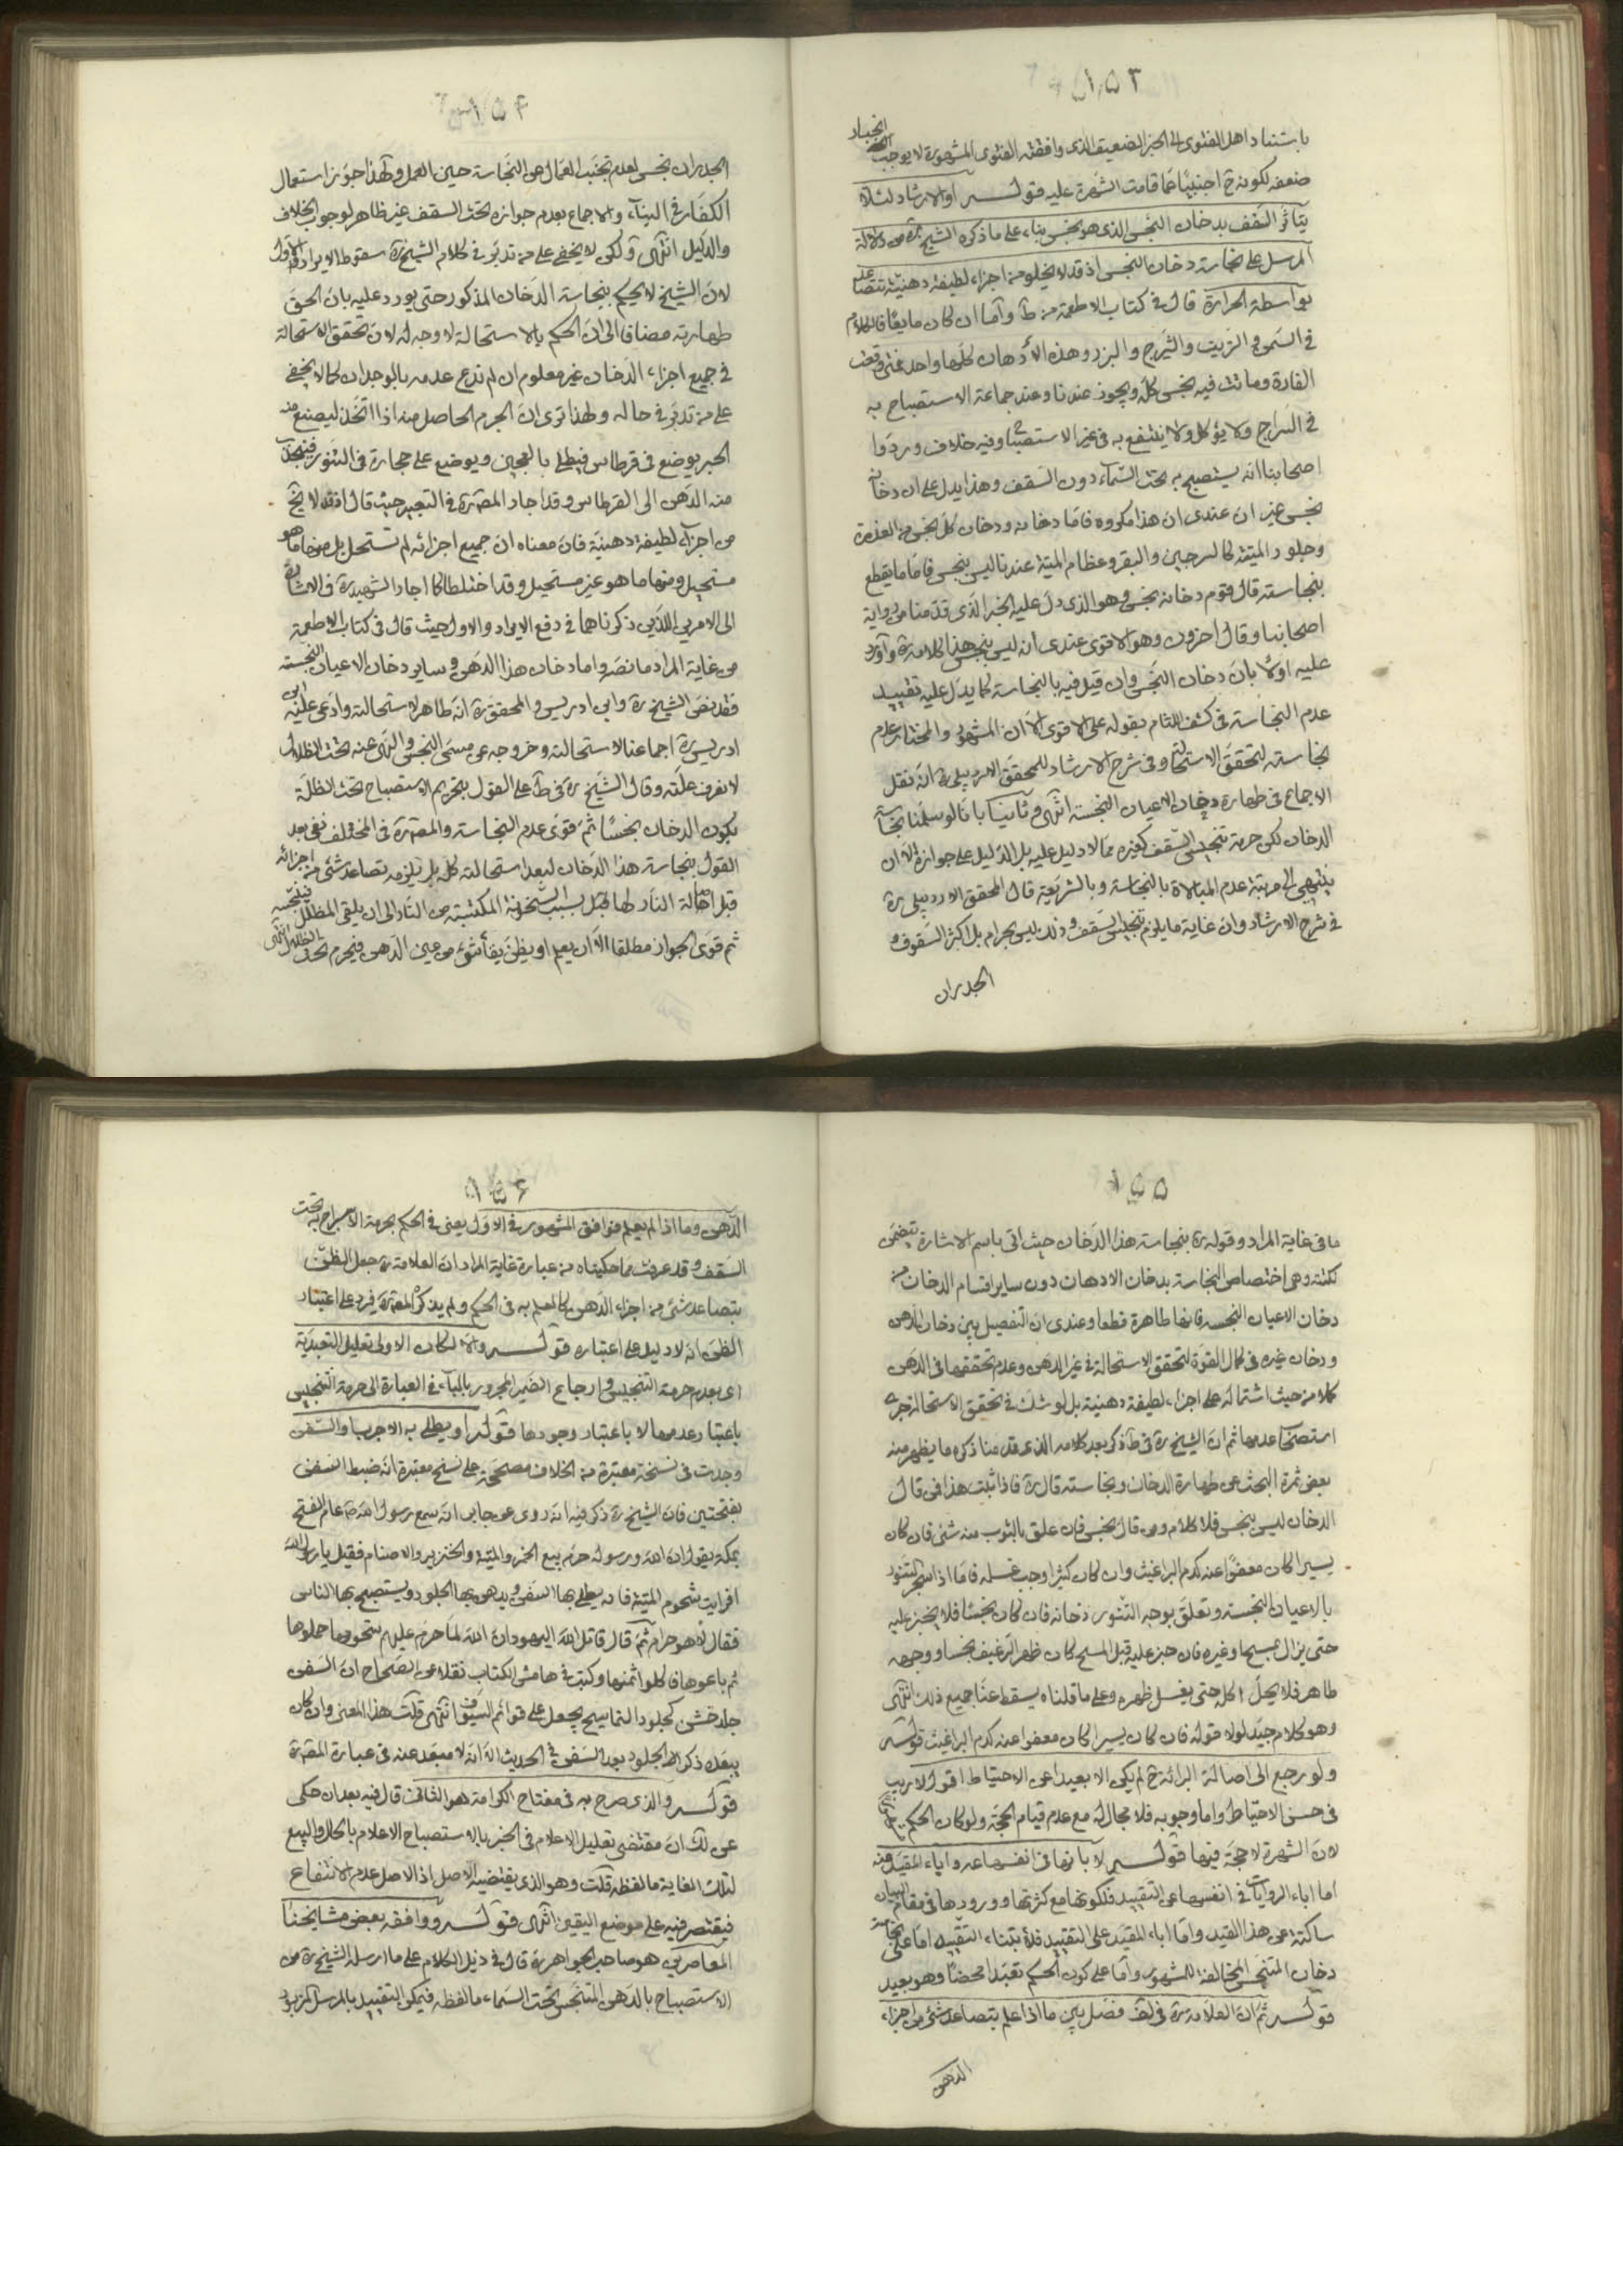 ١٥٣
باستناد اهل الفتوى الى الخبر الضعيف الذى وافقته الفتوى المشهورة لا يوجب انجبار
ضعفه لكونه ح اجنبيًا عما قامت الشهرة عليه قوله او الارشاد لئلا
يتاثر السقف بدخان النجس الذى هو نجس بناء على ما ذكره الشيخ ره من دلالة
المرسل على نجاسة دخان النجس اذ قد لا يخلو من اجزاء لطيفة دهنية تتصاعد
بواسطة الحرارة قال فى كتاب الاطعمة من ط واما ان كان مايعًا فالكلام
فى السمن والزيت والشيرج والبزر وهذه الادهان كلها واحد فمتى وقعت
الفارة وماتت فيه نجس كله ويجوز عندنا وعند جماعة الاستصباح به
فى السراج ولا يؤكل ولا ينتفع به فى غير الاستصباح وفيه خلاف وردوا
اصحابنا انه يستصبح به تحت السماء دون السقف وهذا يدل على ان دخانه
نجس غير ان عندى ان هذا مكروه فاما دخانه ودخان كل نجس من العذرة
وجلود الميتة كالسرجين والبقر وعظام الميتة عندنا ليس بنجس فاما ما يقطع
بنجاسته قال قوم دخانه نجس وهو الذى دل عليه الخبر الذى قدمنا من رواية
اصحابنا وقال اخرون وهو الاقوى عندى انه ليس بنجس هذا كلامه ره واورد
عليه اولا بان دخان النجس وان قيل فيه بالنجاسة كما يدل عليه تقييد
عدم النجاسة فى كشف اللثام بقوله على الاقوى الا ان المشهور والمختار عدم
نجاسته لتحقق الاستحالة وفى شرح الارشاد للمحقق الاردبيلى ره انه نقل
الاجماع فى طهارة دخان الاعيان النجسة انتهى وثانيًا بانا لو سلمنا نجاسة
الدخان لكن حرمة تنجيس السقف كغيره مما لا دليل عليه بل الدليل على جوازه الا ان
ينتهى الى مرتبة عدم المبالاة بالنجاسة وبالشريعة قال المحقق الاردبيلى ره
فى شرح الارشاد وان غاية ما يلزم تنجيس السقف وذلك ليس بحرام بل اكثر السقوف و
الجدران
١٥٤
الجدران نجس لعدم تجنب العمال عن النجاسة حين العمل ولهذا جوز استعمال
الكفار فى البناء والاجماع بعدم جوازه تحت السقف غير ظاهر لوجود الخلاف
والدليل انتهى ولكن لا يخفى على من تدبر فى كلام الشيخ ره سقوط الايراد الاول
لان الشيخ لا يحكم بنجاسة الدخان المذكور حتى يورد عليه بان الحق
طهارته مضافا الى ان الحكم بالاستحالة لا وجه له لان تحقق الاستحالة
فى جميع اجزاء الدخان غير معلوم ان لم ندع عدمه بالوجدان كما لا يخفى
على من تدبر فى حاله ولهذا ترى ان الجرم الحاصل منه اذا اتخذ ليصنع منه
الحبر يوضع فى قرطاس فيطلى بالعجين ويوضع على حجارة فى التنور فينجذب
منه الدهن الى القرطاس وقد اجاد المصنف ره فى التعبير حيث قال اذ قد لا يخ
من اجزاء لطيفة دهنية فان معناه ان جميع اجزائه لم تستحل بل منها ما هو
مستحيل ومنها ما هو غير مستحيل وقد اختلطا كما اجاد الشهيد ره فى الاشارة
الى الامرين اللذين ذكرناهما فى دفع الايراد الاول حيث قال فى كتاب الاطعمة
من غاية المراد ما نصه واما دخان هذا الدهن وساير دخان الاعيان النجسة
فقد نص الشيخ ره وابن ادريس والمحقق ره انه طاهر لاستحالته وادعى عليه ابن
ادريس ره اجماعنا لاستحالته وخروجه عن مسمى النجس والنهى عنه تحت الظلال
لا نعرف علته وقال الشيخ ره فى ط على القول بتحريم الاستصباح تحت الظلة
يكون الدخان نجسًا ثم قوى عدم النجاسة والمصنف ره فى المختلف نفى بعد
القول بنجاسة هذا الدخان لبعد استحالته كله بل يلزمه تصاعد شئ من اجزائه
قبل احالة النار لها بسبب السخونة المكتسبة من النار الى ان يلقى المظلل فينجسه
ثم قوى الجواز مطلقا الا ان يعلم او يظن بقاء شئ من عين الدهن فيحرم تحت الظلال انتهى
١٥٥
ما فى غاية المراد وقوله ره بنجاسة هذا الدخان حيث اتى باسم الاشارة يتضمن
نكتة وهى اختصاص النجاسة بدخان الادهان دون ساير اقسام الدخان من
دخان الاعيان النجسه فانها طاهرة قطعا وعندى ان التفصيل بين دخان الدهن
ودخان غيره فى كمال القوة لتحقق الاستحالة فى غير الدهن وعدم تحققها فى الدهن
كلا من حيث اشتماله على اجزاء لطيفة دهنية بل لو شك فى تحقق الاستحالة جرى
استصحاب عدمها ثم ان الشيخ ره فى ط ذكر بعد كلامه الذى قدمنا ذكره ما يظهر منه
بعض ثمرة البحث عن طهارة الدخان ونجاسته قال ره فاذا ثبت هذا فمن قال
الدخان ليس بنجس فلا كلام ومن قال نجس فان علق بالثوب منه شئ فان كان
يسيرا كان معفوا عنه كدم البراغيث وان كان كثيرا وجب غسله فاما اذا سجر التنور
بالاعيان النجسة وتعلق بوجه التنور دخانه فان كان نجسًا فلا يخبز عليه
حتى يزال بمسح او غيره فان خبز عليه قبل المسح كان ظهر الرغيف نجسا ووجهه
طاهر فلا يحل اكله حتى يغسل ظهره وعلى ما قلناه يسقط عنا جميع ذلك انتهى
وهو كلام جيد لولا قوله فان كان يسيرا كان معفوا عنه كدم البراغيث قوله
ولو رجع الى اصالة البرائة ح لم يكن الا بعيدا عن الاحتياط اقول لا ريب
فى حسن الاحتياط واما وجوبه فلا مجال له مع عدم قيام الحجة ولو كان الحكم
لان الشهرة لا حجة فيها قوله لابائها فى انفسها عنه واباء المقيد عنه
اما اباء الروايات فى انفسها عن التقييد فلكونها مع كثرتها وورودها فى مقام البيان
ساكتة عن هذا القيد واما اباء المقيد على التقييد فلابتناء التقييد اما على نجاسة
دخان المتنجس المخالفة للمشهور واما على كون الحكم تعبدا محضًا وهو بعيد
قوله ثم ان العلامة ره فى لف فصل بين ما اذا علم بتصاعد شئ من اجزاء
الدهن
١٥٦
الدهن وما اذا لم يعلم فوافق المشهور فى الاول يعنى فى الحكم بحرمة الاسراج به تحت
السقف وقد عرفت مما حكيناه من عبارة غاية المراد ان العلامة ره جعل الظن
بتصاعد شئ من اجزاء الدهن كالعلم به فى الحكم ولم يذكره المصنف ره فيرد على اعتبار
الظن انه لا دليل على اعتباره قوله والا لكان الاولى تعليل التعبدية
اى بعدم حرمة التنجيس وارجاع الضمير المجرور بالباء فى العبارة الى حرمة التنجيس
باعتبار عدمها لا باعتبار وجودها قوله او يطلى به الاجرب او السفن
وجدت فى نسخة معتبرة من الخلاف مصححة على نسخ معتبرة انه ضبط السفن
بفتحتين فان الشيخ ره ذكر فيه انه روى عن جابر انه سمع رسول الله ص عام الفتح
بمكة يقول ان الله ورسوله حرم بيع الخمر والميتة والخنزير والاصنام فقيل يا رسول الله
افرايت شحوم الميتة فانه يطلى بها السفن ويدهن بها الجلود ويستصبح بها الناس
فقال لا هو حرام ثم قال قاتل الله اليهود ان الله لما حرم عليهم شحومها جملوها
ثم باعوها فاكلوا اثمنها وكتب فى هامش الكتاب نقلا عن الصحاح ان السفن
جلد خشن كجلود التماسيح يجعل على قوائم السيوف انتهى قلت هذا المعنى وان كان
يبعده ذكر الجلود بعد السفن فى الحديث الا انه لا مبعد عنه فى عبارة المصنف ره
قوله والذى صرح به فى مفتاح الكرامة هو الثانى قال فيه بعد ان حكى
عن لك ان مقتضى تعليل الاعلام فى الخبر بالاستصباح الاعلام بالحال والبيع
لتلك الغاية ما لفظه قلت وهو الذى يقتضيه الاصل اذ الاصل عدم الانتفاع
فيقتصر فيه على موضع اليقين انتهى قوله ووافقه بعض مشايخنا
المعاصرين هو صاحب الجواهر ره قال فى ذيل الكلام على ما ارسله الشيخ ره من
الاستصباح بالدهن المتنجس تحت السماء ما لفظه فيمكن التقييد بالمرسل المزبور